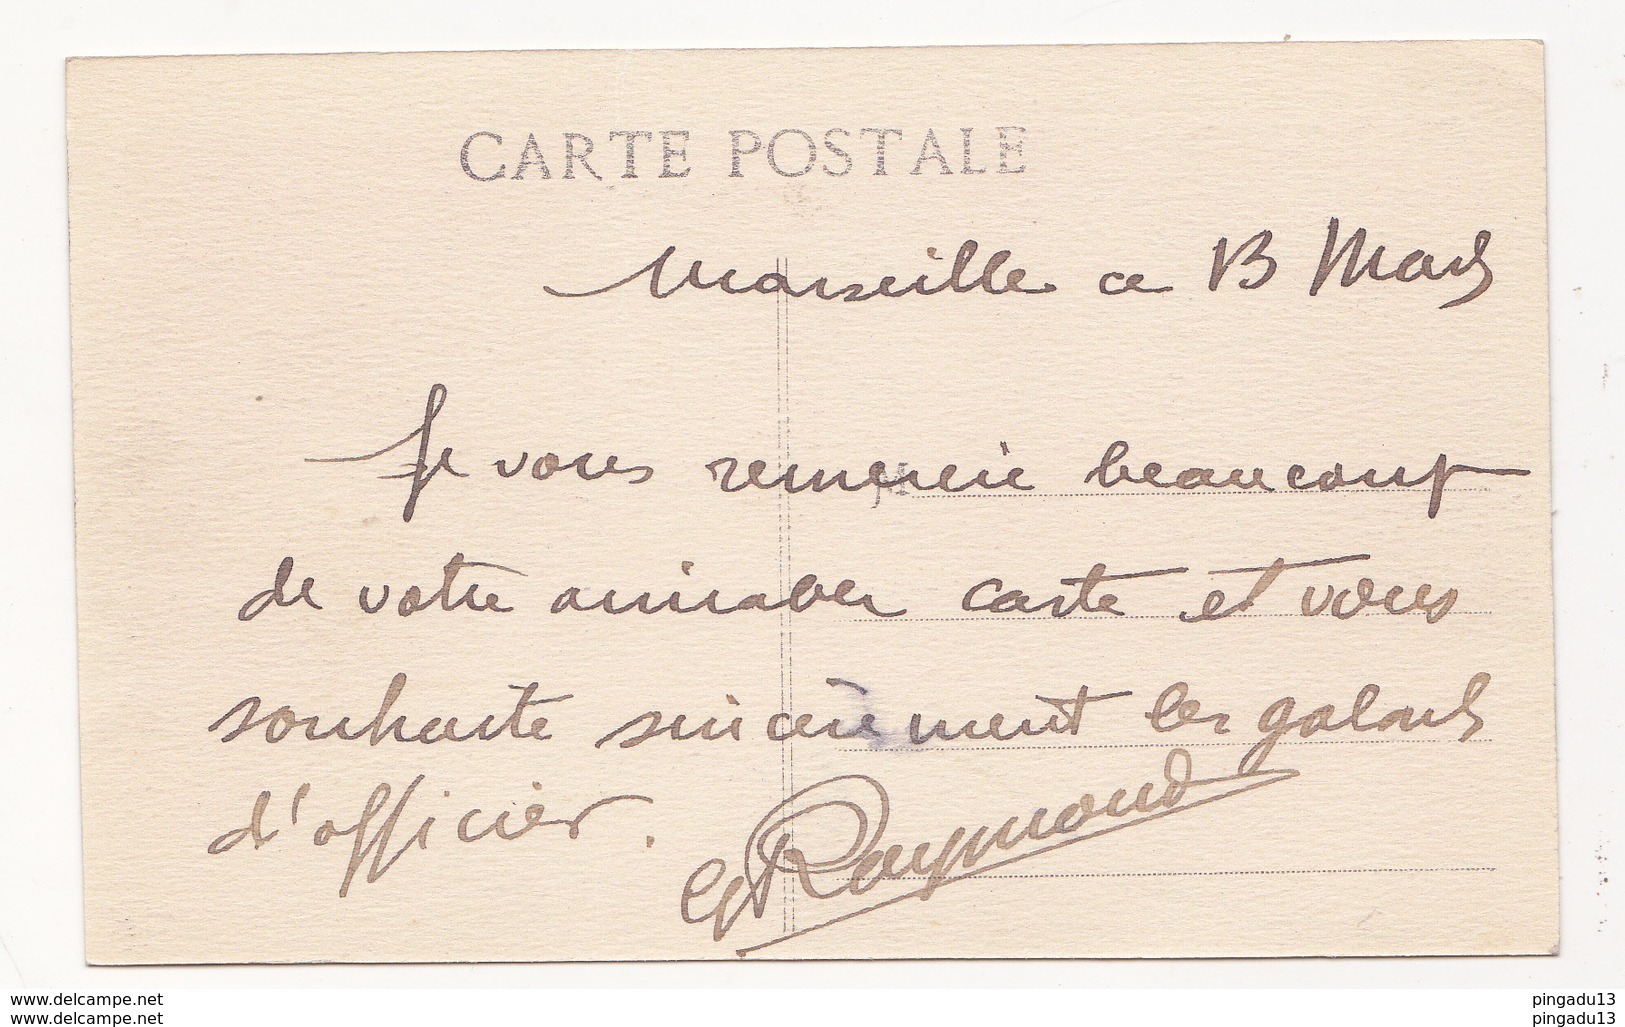 CARTE POSTALE
Marseille ce 13 Mars
Je vous remercie beaucoup
de votre aimable carte et vous
souhaite sincèrement les galons
d'officier.
G Raymond
www.delcampe.net
www.delcampe.net
pingadu13
pingadu13